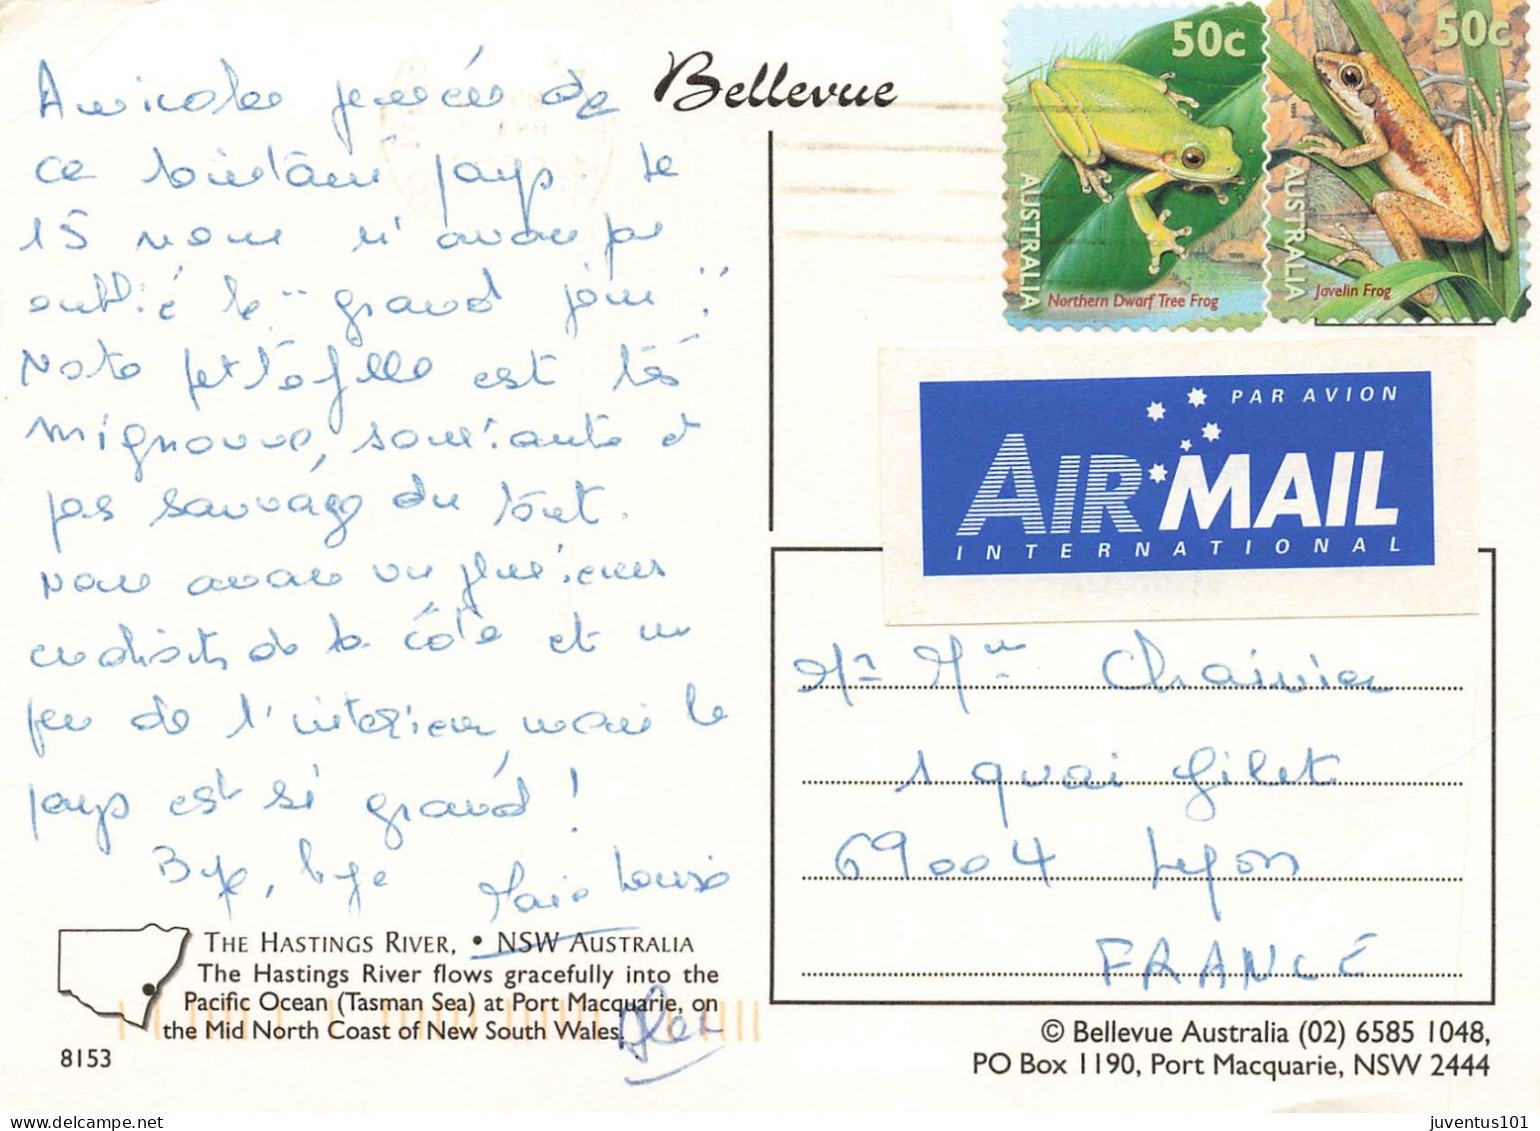 Amicales pensées de
ce lointain pays. Le
15 nous n'avons pas
oublié le "grand jour".
Notre petite fille est très
mignonne, souriante et
pas sauvage du tout.
Nous avons vu plusieurs
endroits de la côte et un
peu de l'intérieur mais le
pays est si grand !
Bye, bye Marie Louise
THE HASTINGS RIVER, • NSW AUSTRALIA
The Hastings River flows gracefully into the
Pacific Ocean (Tasman Sea) at Port Macquarie, on
the Mid North Coast of New South Wales.
8153
Bellevue
50c
AUSTRALIA
1999
Northern Dwarf Tree Frog
50c
AUSTRALIA
1999
Javelin Frog
PAR AVION
AIR MAIL
INTERNATIONAL
Mr Mme
1 quai Gillet
69004 Lyon
FRANCE
© Bellevue Australia (02) 6585 1048,
PO Box 1190, Port Macquarie, NSW 2444
juventus101